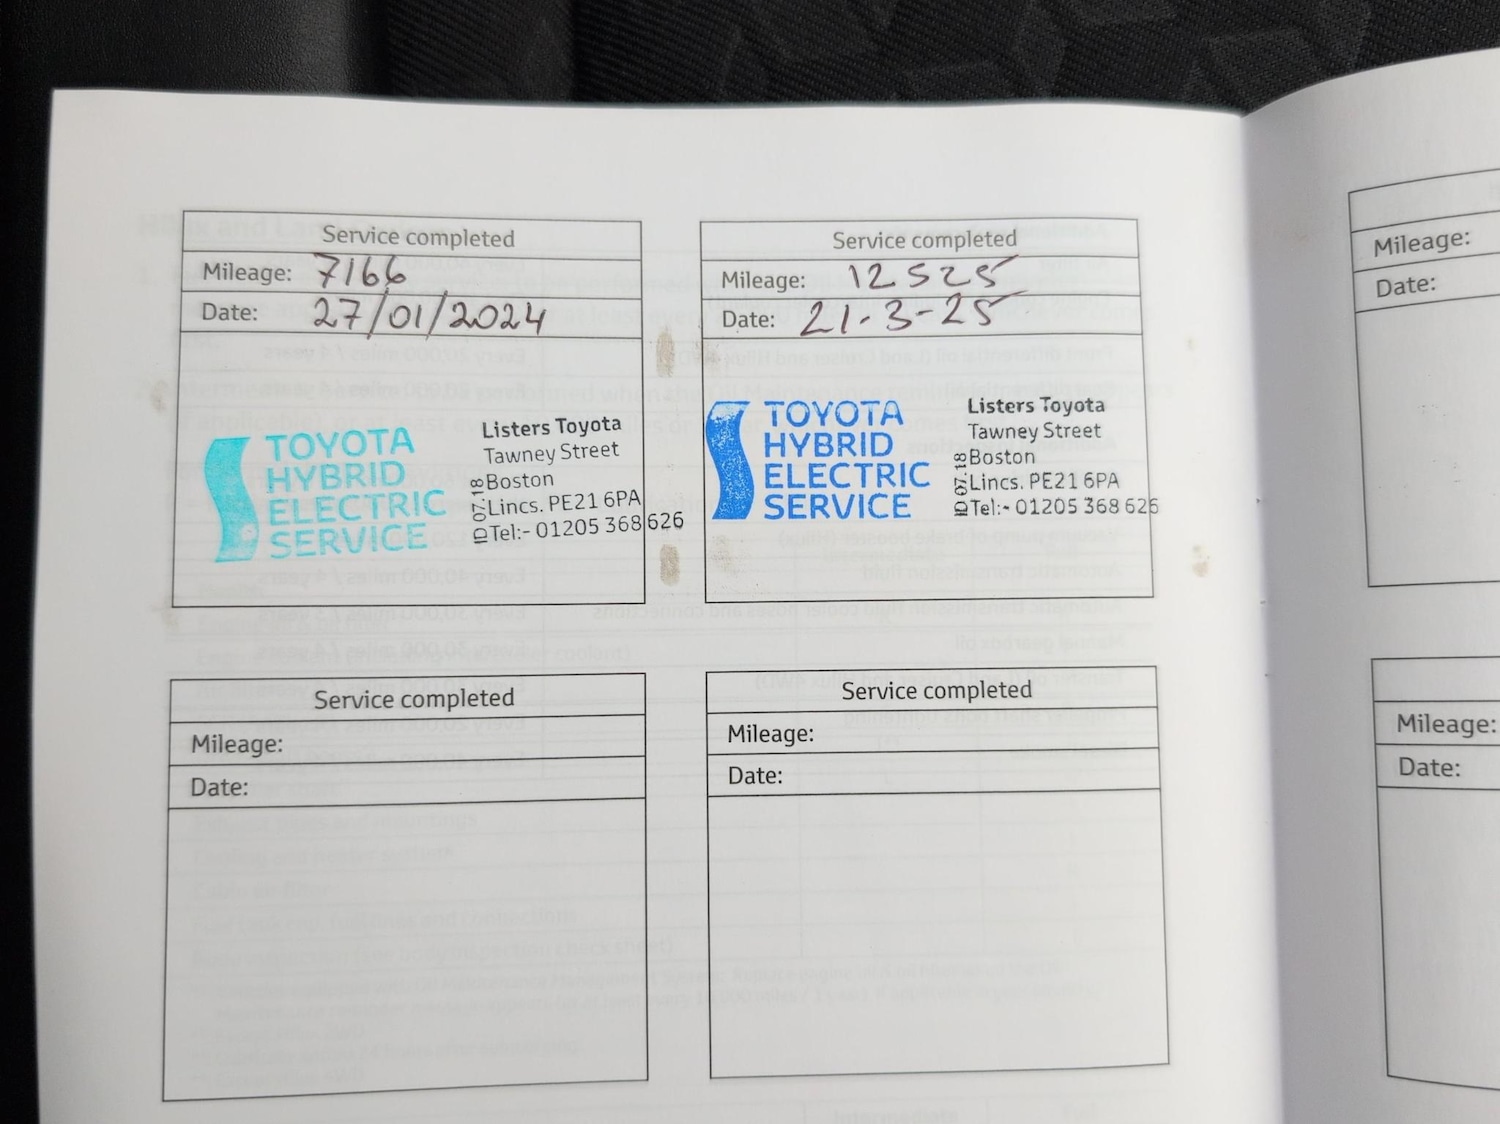 Service completed
Mileage: 7166
Date: 27/01/2024
TOYOTA
HYBRID
ELECTRIC
SERVICE
Listers Toyota
Tawney Street
Boston
Lincs. PE21 6PA
Tel:- 01205 368 626
ID 07.18
Service completed
Mileage: 12525
Date: 21-3-25
TOYOTA
HYBRID
ELECTRIC
SERVICE
Listers Toyota
Tawney Street
Boston
Lincs. PE21 6PA
Tel:- 01205 368 626
ID 07.18
Service completed
Mileage:
Date:
Service completed
Mileage:
Date:
Mileage:
Date:
Mileage:
Date: